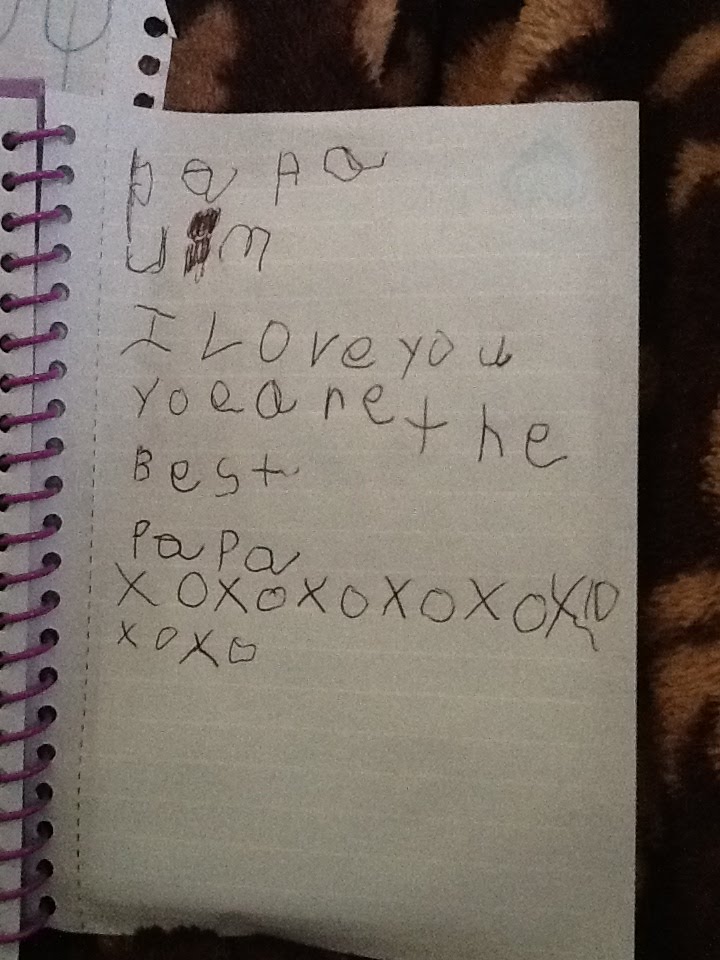 papa
Jim
I Love you
yoeare the
Best
PaPa
XOXOXOXOXOXO
XOXO